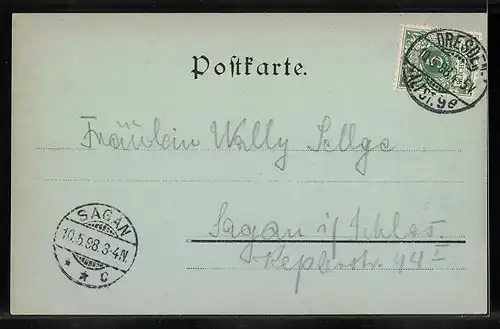 Postkarte.
DRESDEN.
Fräulein Wally Sellge
Sagan i/Schles.
Keplerstr. 44 I
SAGAN
10.5.98.3-4N.
* * c